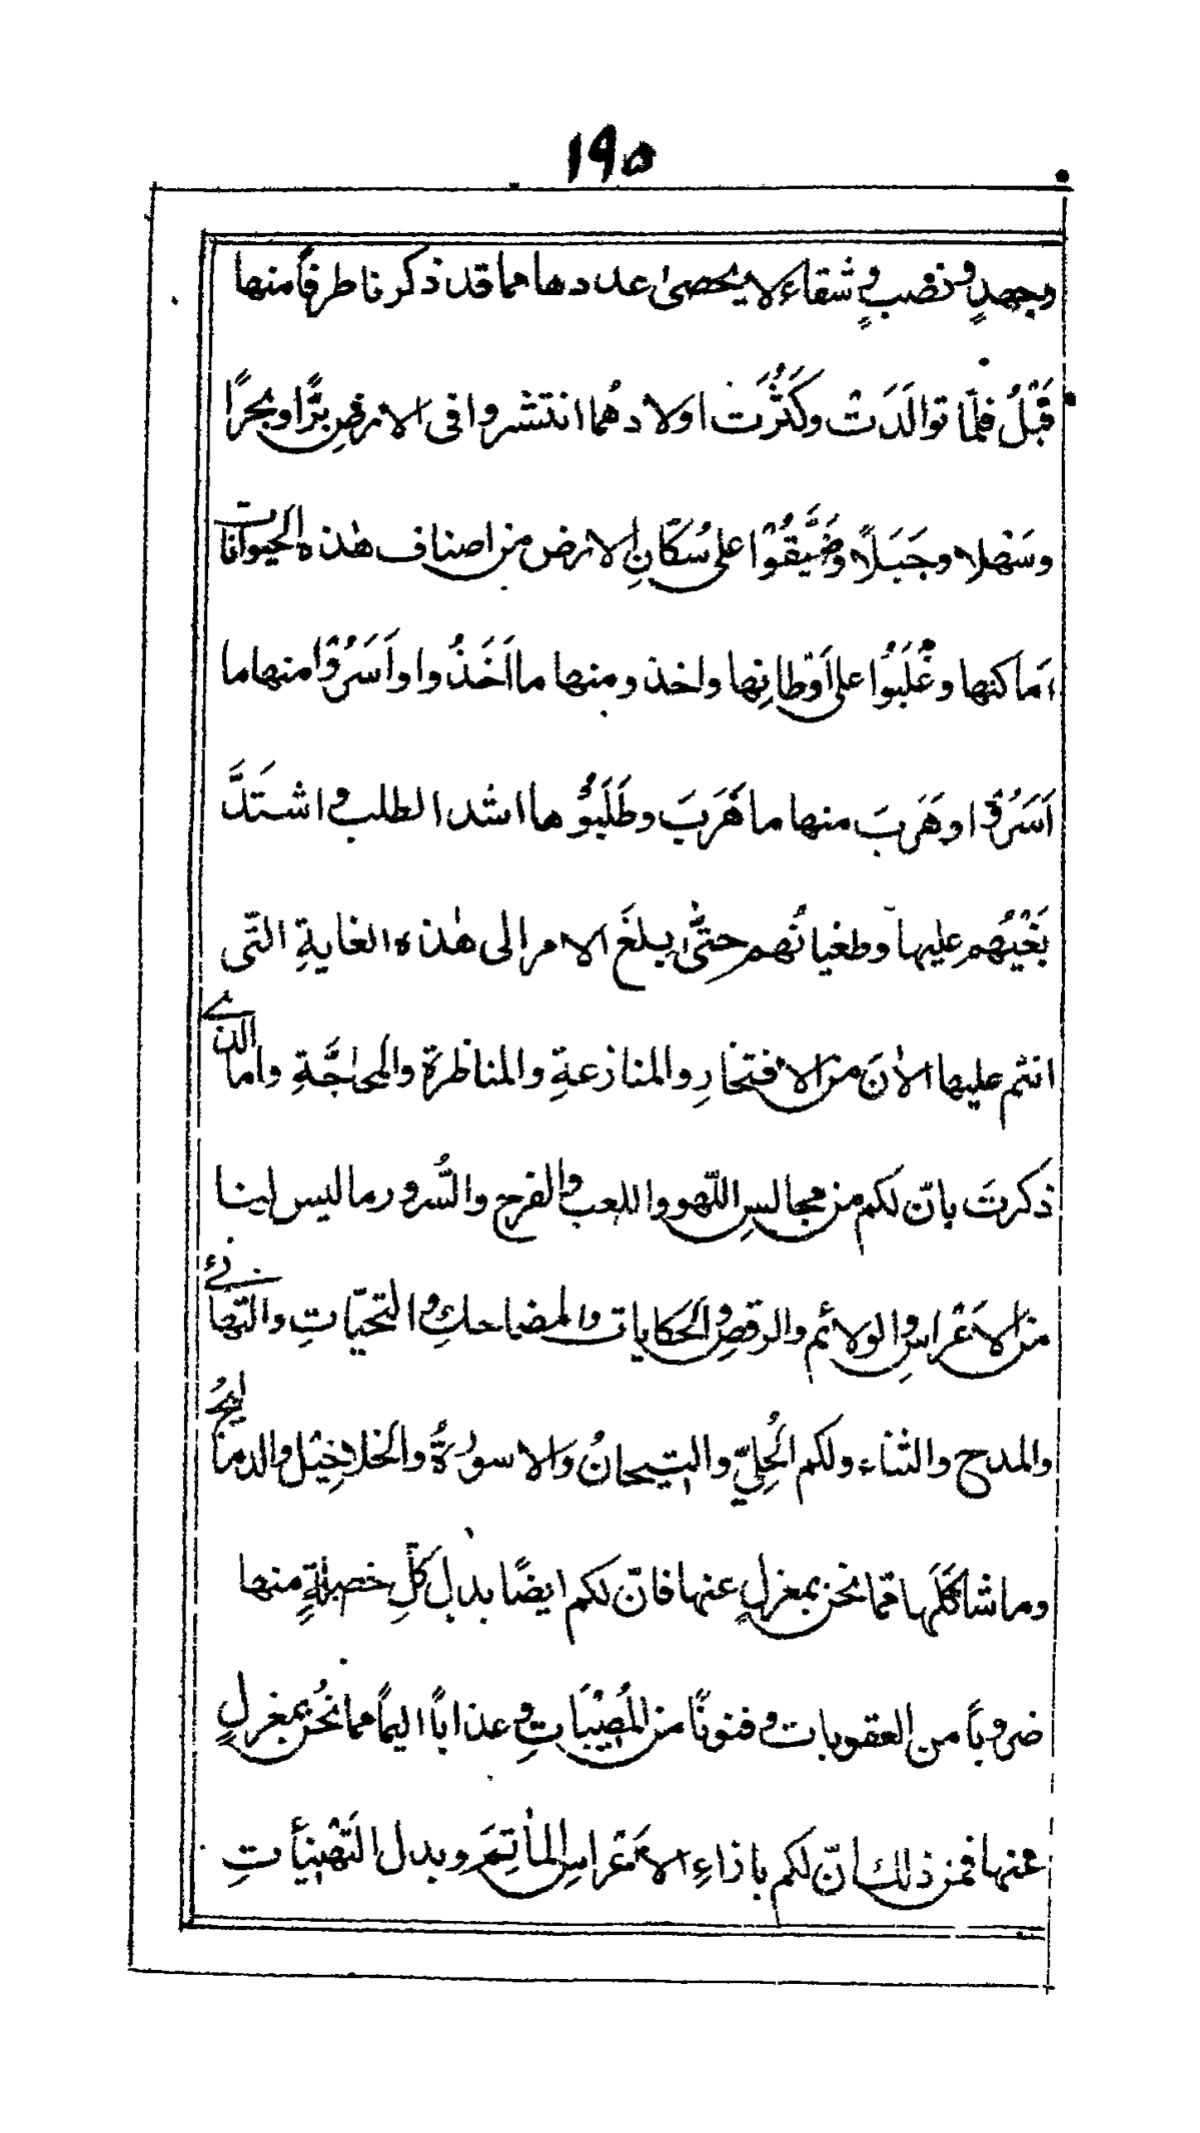 ١٩٥
وجهدٍ ونصبٍ وشقاءٍ لا يحصىٰ عددها مما قد ذكرنا طرفاً منها
قَبْلُ فلمّا توالَدَتْ وكَثُرَت اولادهُما انتشروا فى الارضِ برًّا وبحرًا
وسَهْلاً وجَبَلاً وضَيَّقُوْا على سُكّانِ الارض من اصناف هٰذه الحيوانات
اَماكنها وغُلَبُوْا على اَوْطانِها واخذ ومنها ما اَخَذُ وا واَسَرُوْا منها ما
اَسَرُوْا وهَرَبَ منها ما هَرَبَ وطَلَبُوْها اشدا الطلب واشتَدَّ
بَغْيُهم عليها وطغيانُهم حتّٰى بلغَ الامر الى هٰذه الغايةِ التّى
انتم عليها الاٰنَ من الافتخارِ والمنازعةِ والمناظرة والمحاجَّةِ واما الذے
ذكرتَ بانّ لكم من مجالسِ اللّهو واللعب والفرح والسُّرور ما ليس لينا
من الاَعْراسِ والولائم والرقصِ والحكايات والمضاحكِ والتحيّاتِ والتّهانئ
والمدح والثناء ولكم الحُلِيّ والتيجانُ والاسوُرَةُ والخلاخِيْل والدمالجُ
وما شاكَلَها ممّا نحن بمعزلٍ عنها فانّ لكم ايضًا بدل كلِّ خصلةٍ منها
ضروباً من العقوبات وفنونًا من المُصِيْبَاتِ وعذاباً اليماً مما نحُن بمعزلٍ
عنها فمن ذلك انّ لكم باذاءِ الاَعْراسِ المأتِمَ وبدل التَهْنيأتِ